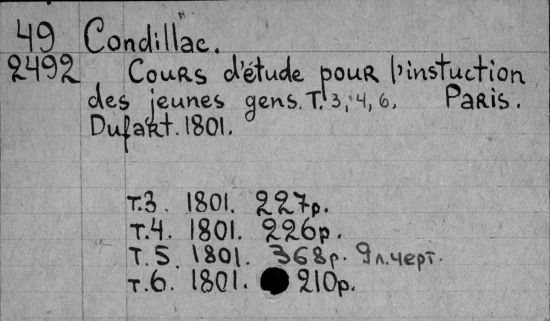 49 Condillac.
2492 Cours d'étude pour l'instuction
des jeunes gens. T. 3, 4, 6. Paris.
Dufart. 1801.
т.3. 1801. 227p.
т.4. 1801. 226p.
т.5. 1801. 368p. 9л.черт.
т.6. 1801. 210p.